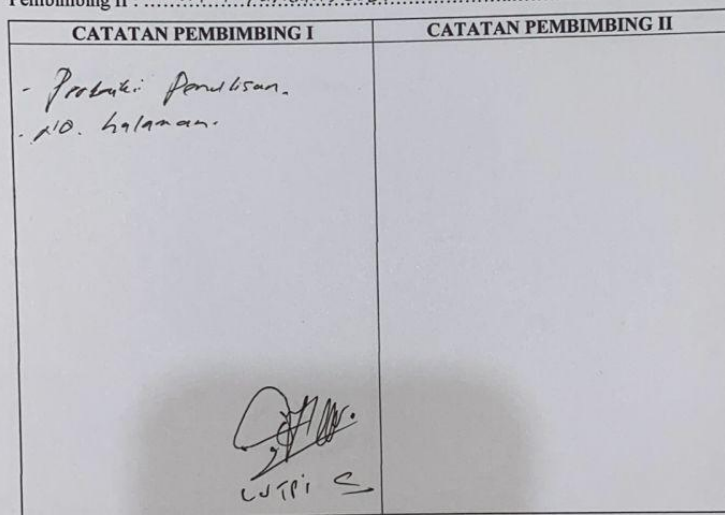 Pembimbing II :
CATATAN PEMBIMBING I
CATATAN PEMBIMBING II
- Perbaiki Penulisan.
- No. halaman.